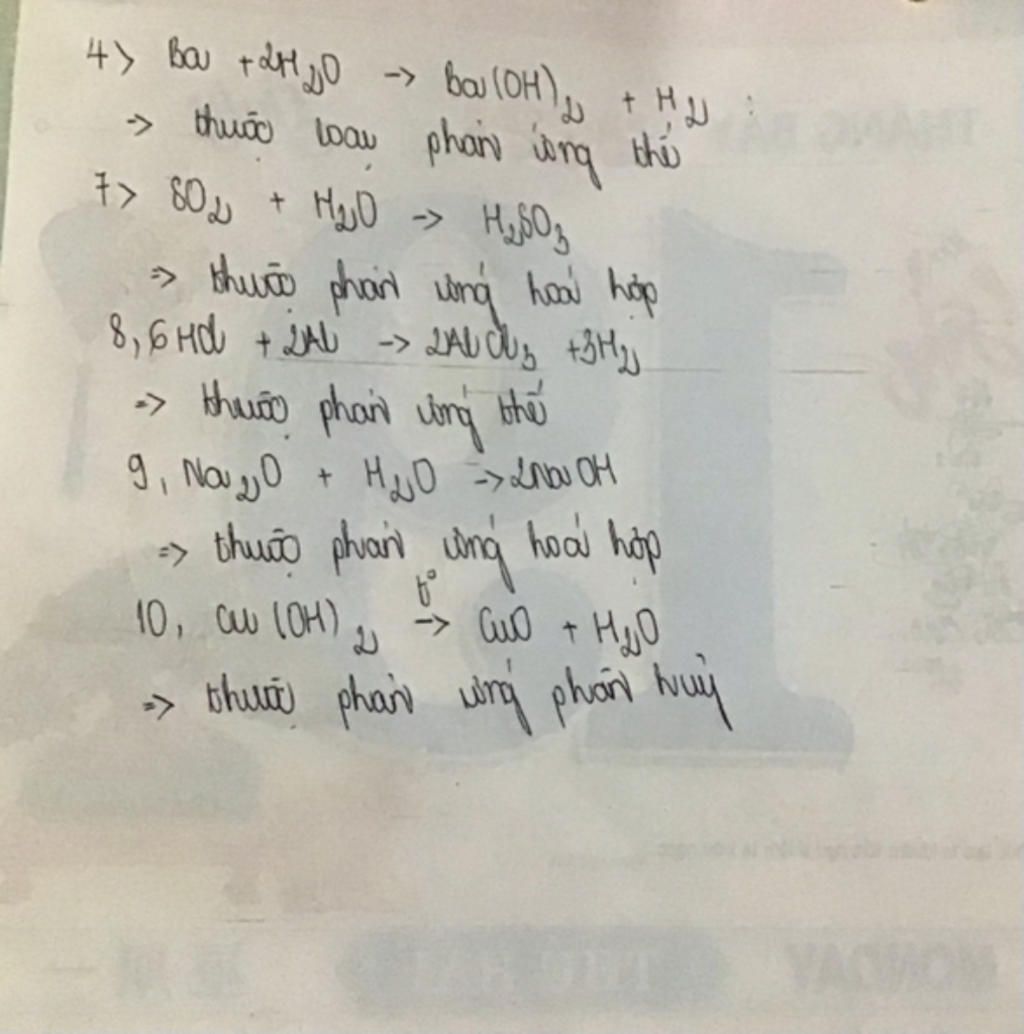 4> Ba + 2H₂O → Ba(OH)₂ + H₂
=> thuộc loại phản ứng thế
7> SO₂ + H₂O → H₂SO₃
=> thuộc phản ứng hoá hợp
8, 6HCl + 2Al → 2AlCl₃ + 3H₂
=> thuộc phản ứng thế
9, Na₂O + H₂O → 2NaOH
=> thuộc phản ứng hoá hợp
10, Cu(OH)₂ →(t°) CuO + H₂O
=> thuộc phản ứng phân huỷ
THÁNG BẢY
MONDAY